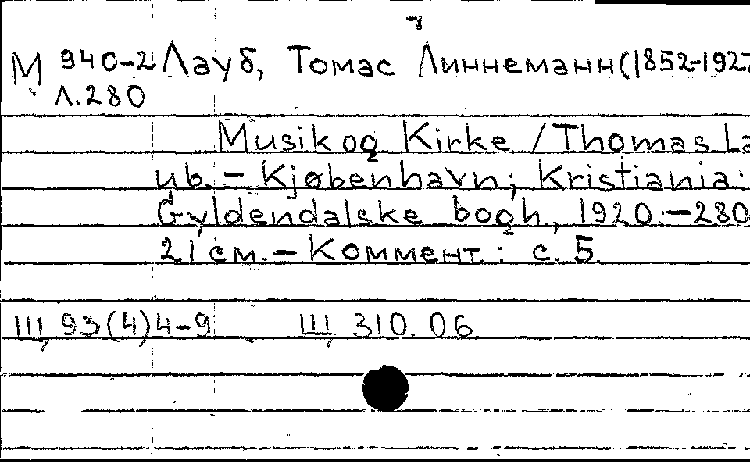 М 940-2 Лауб, Томас Линнеманн (1852-1927
Л.280
Musik og Kirke / Thomas La
ub. – Kjøbenhavn; Kristiania:
Gyldendalske bogh., 1920. – 280
21 см. – Коммент.: с. 5
Щ 93(4)4-9 Щ 310.06